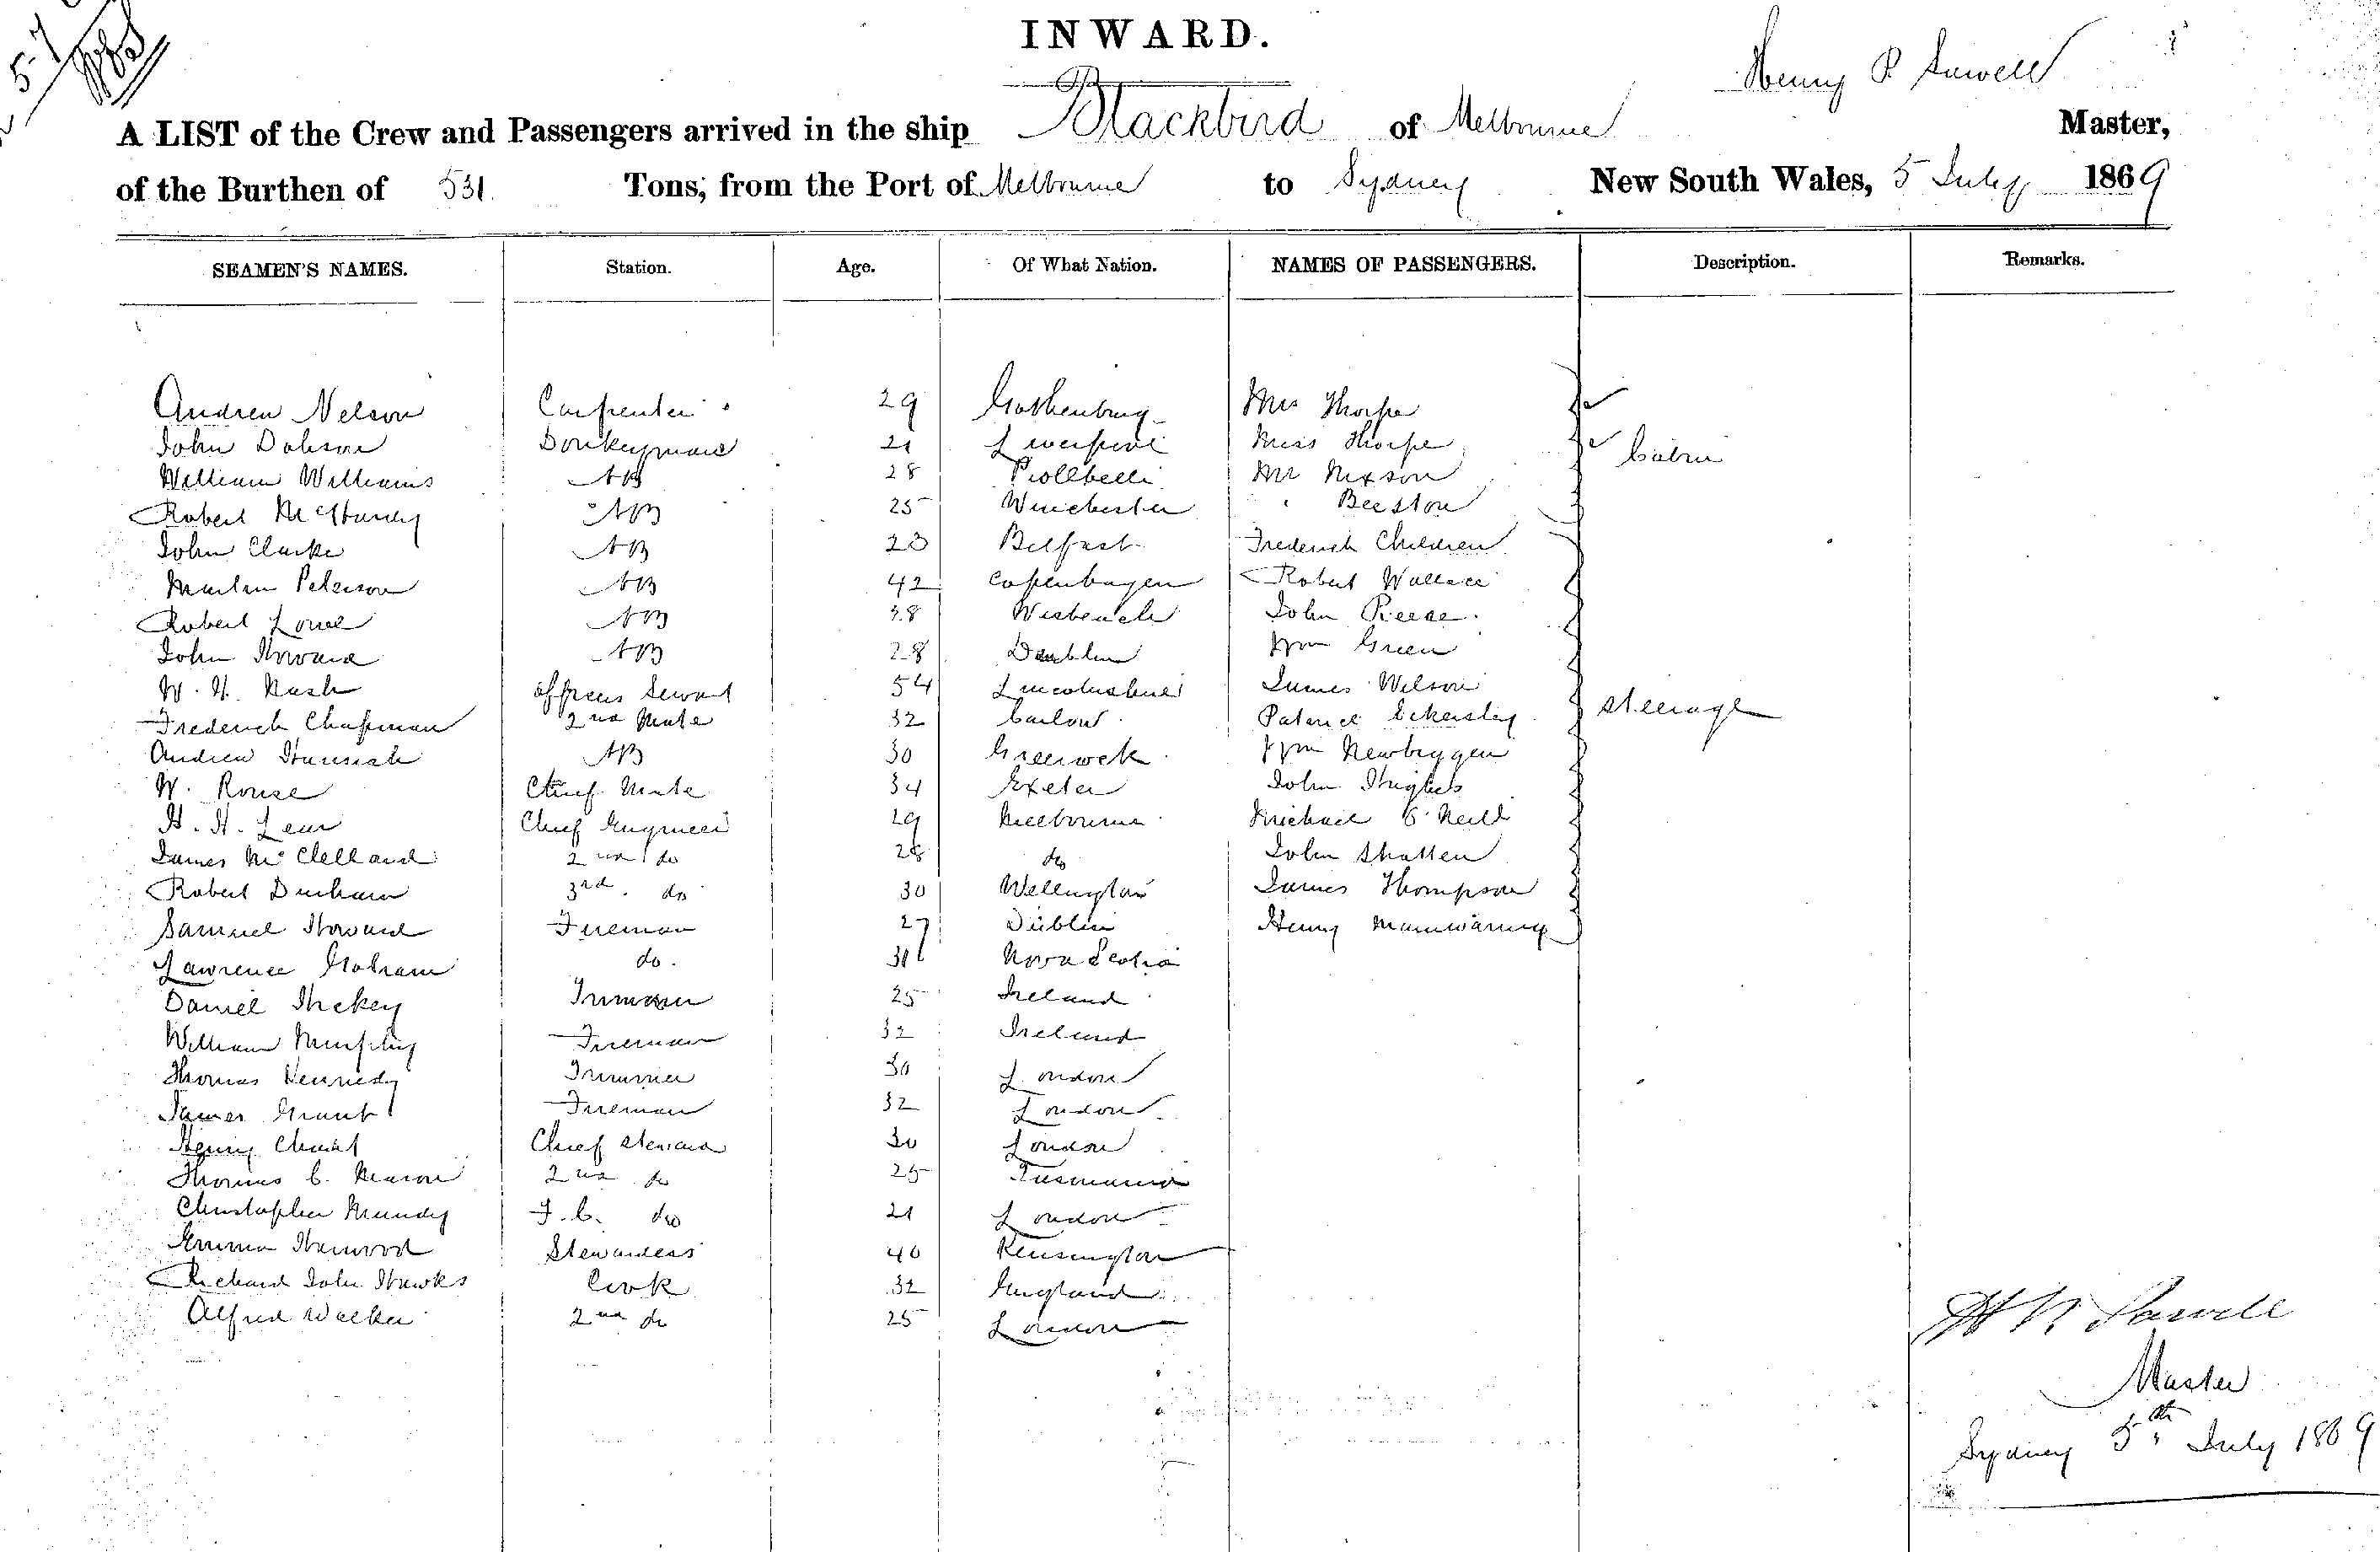 57
INWARD.
Henry P. Sawell
A LIST of the Crew and Passengers arrived in the ship Blackbird of Melbourne Master,
of the Burthen of 531 Tons, from the Port of Melbourne to Sydney New South Wales, 5 July 1869
SEAMEN'S NAMES. Station. Age. Of What Nation. NAMES OF PASSENGERS. Description. Remarks.
Andrew Nelson Carpenter 29 Gothenburg Mrs Thorpe
John Dobson Donkeyman 21 Liverpool Miss Thorpe Cabin
William Williams AB 28 Mr Nixson
Robert McHardy AB 25 Winchester " Beeston
John Clarke AB 23 Belfast Frederick Children
Martin Peterson AB 42 Copenhagen Robert Wallace
Robert Lowe AB 38 Wisbeach John Reece
John Howard AB 28 Dublin Wm Green
W. H. Nash officers servant 54 Lincolnshire James Wilson
Frederick Chapman 2nd Mate 32 Carlow Patrick Eckersley steerage
Andrew AB 30 Wm Newbyggen
W. Rouse Chief Mate 34 Exeter John Hughes
H. H. Chief Engineer 29 Melbourne Michael O'Neill
James McClelland 2nd do 28 do John Shatten
Robert Durham 3rd do 30 Wellington James Thompson
Samuel Howard Fireman 27 Dublin Henry Mainwaring
Lawrence Graham do. Nova Scotia
Daniel Hickey Trimmer 25 Ireland
William Murphy Fireman 32 Ireland
Thomas Kennedy Trimmer 30 London
James Grant Fireman 32 London
Henry Chief Steward 30 London
Thomas C. 2nd do 25 Tasmania
Christopher Mundy F.C. do 21 London
Emma Harwood Stewardess 40 Kensington
Richard John Hawks Cook 32 England
Alfred Walker 2nd do 25 London
H P. Sawell
Master
Sydney 5th July 1869